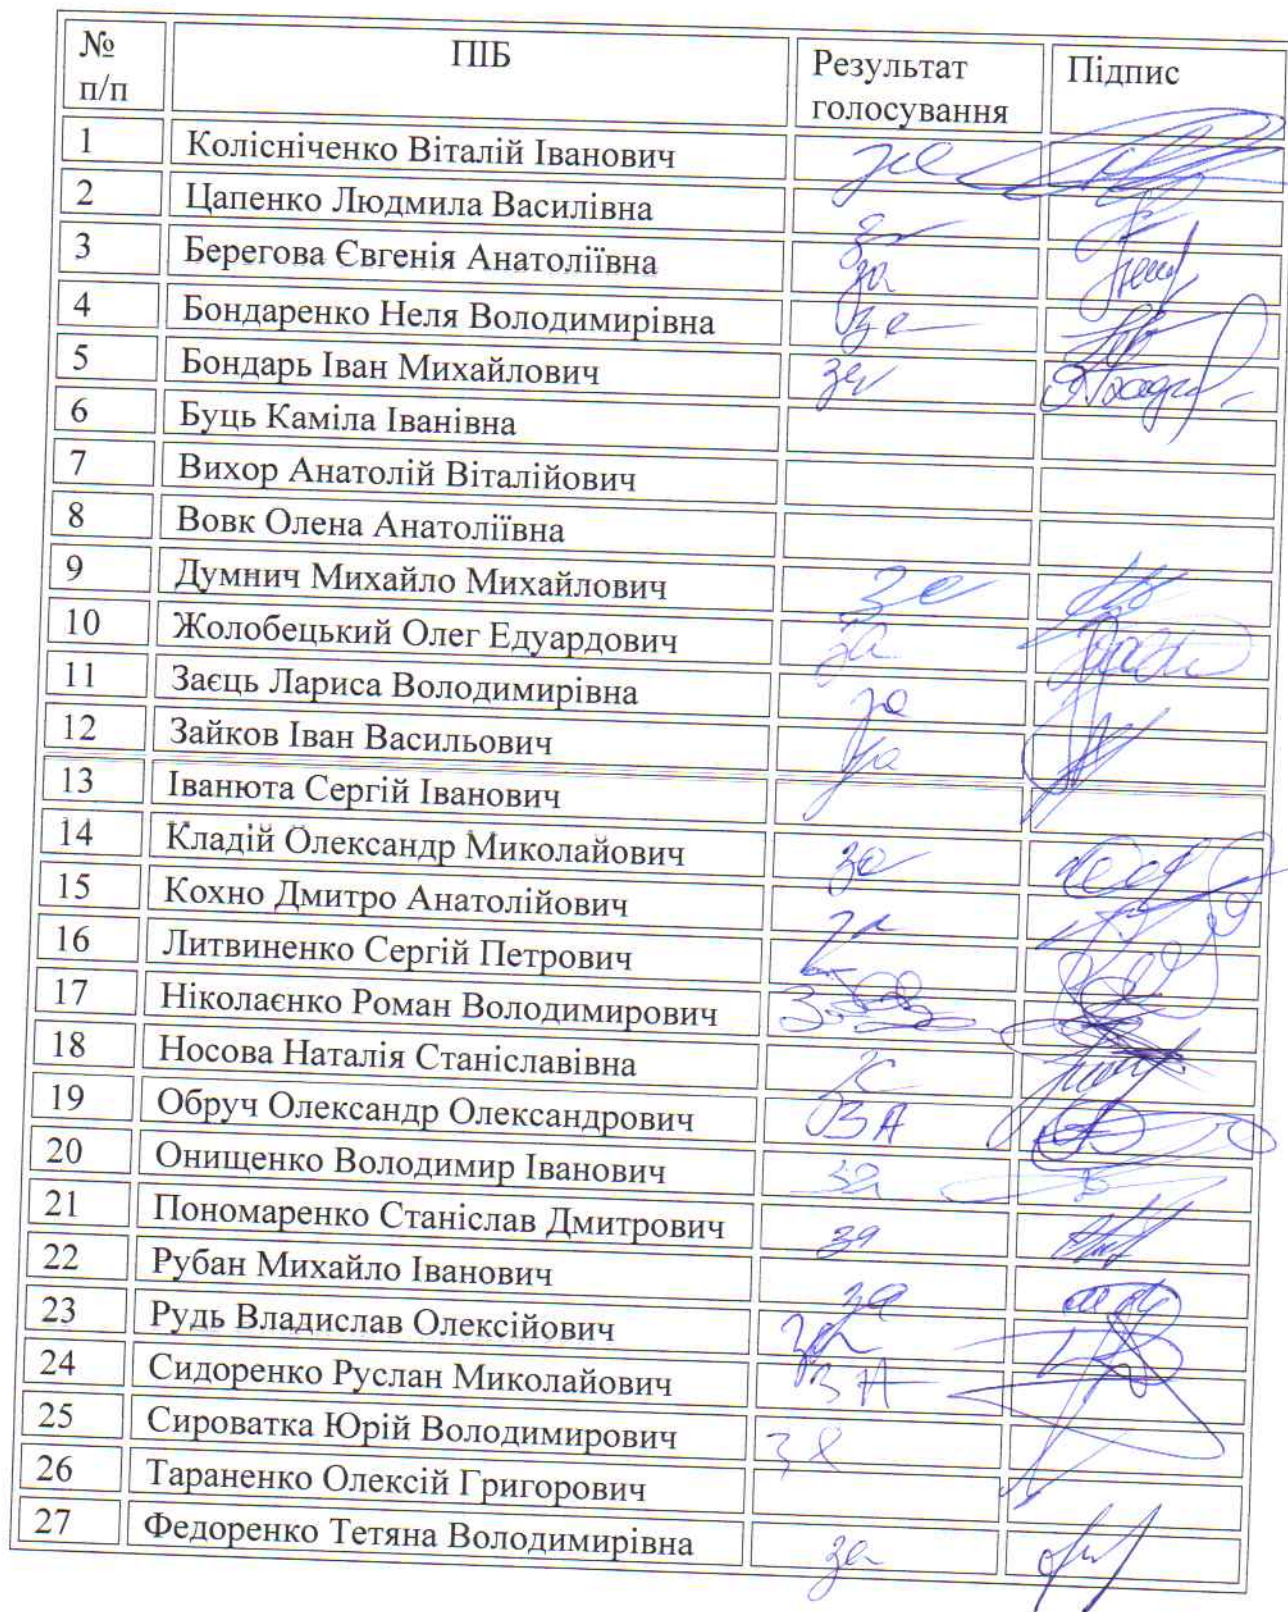 № п/п ПІБ Результат голосування Підпис
1 Колісніченко Віталій Іванович за
2 Цапенко Людмила Василівна за
3 Берегова Євгенія Анатоліївна за
4 Бондаренко Неля Володимирівна за
5 Бондарь Іван Михайлович за
6 Буць Каміла Іванівна
7 Вихор Анатолій Віталійович
8 Вовк Олена Анатоліївна
9 Думнич Михайло Михайлович за
10 Жолобецький Олег Едуардович за
11 Заєць Лариса Володимирівна за
12 Зайков Іван Васильович за
13 Іванюта Сергій Іванович
14 Кладій Олександр Миколайович за
15 Кохно Дмитро Анатолійович
16 Литвиненко Сергій Петрович за
17 Ніколаєнко Роман Володимирович
18 Носова Наталія Станіславівна за
19 Обруч Олександр Олександрович ЗА
20 Онищенко Володимир Іванович за
21 Пономаренко Станіслав Дмитрович за
22 Рубан Михайло Іванович за
23 Рудь Владислав Олексійович за
24 Сидоренко Руслан Миколайович ЗА
25 Сироватка Юрій Володимирович за
26 Тараненко Олексій Григорович
27 Федоренко Тетяна Володимирівна за